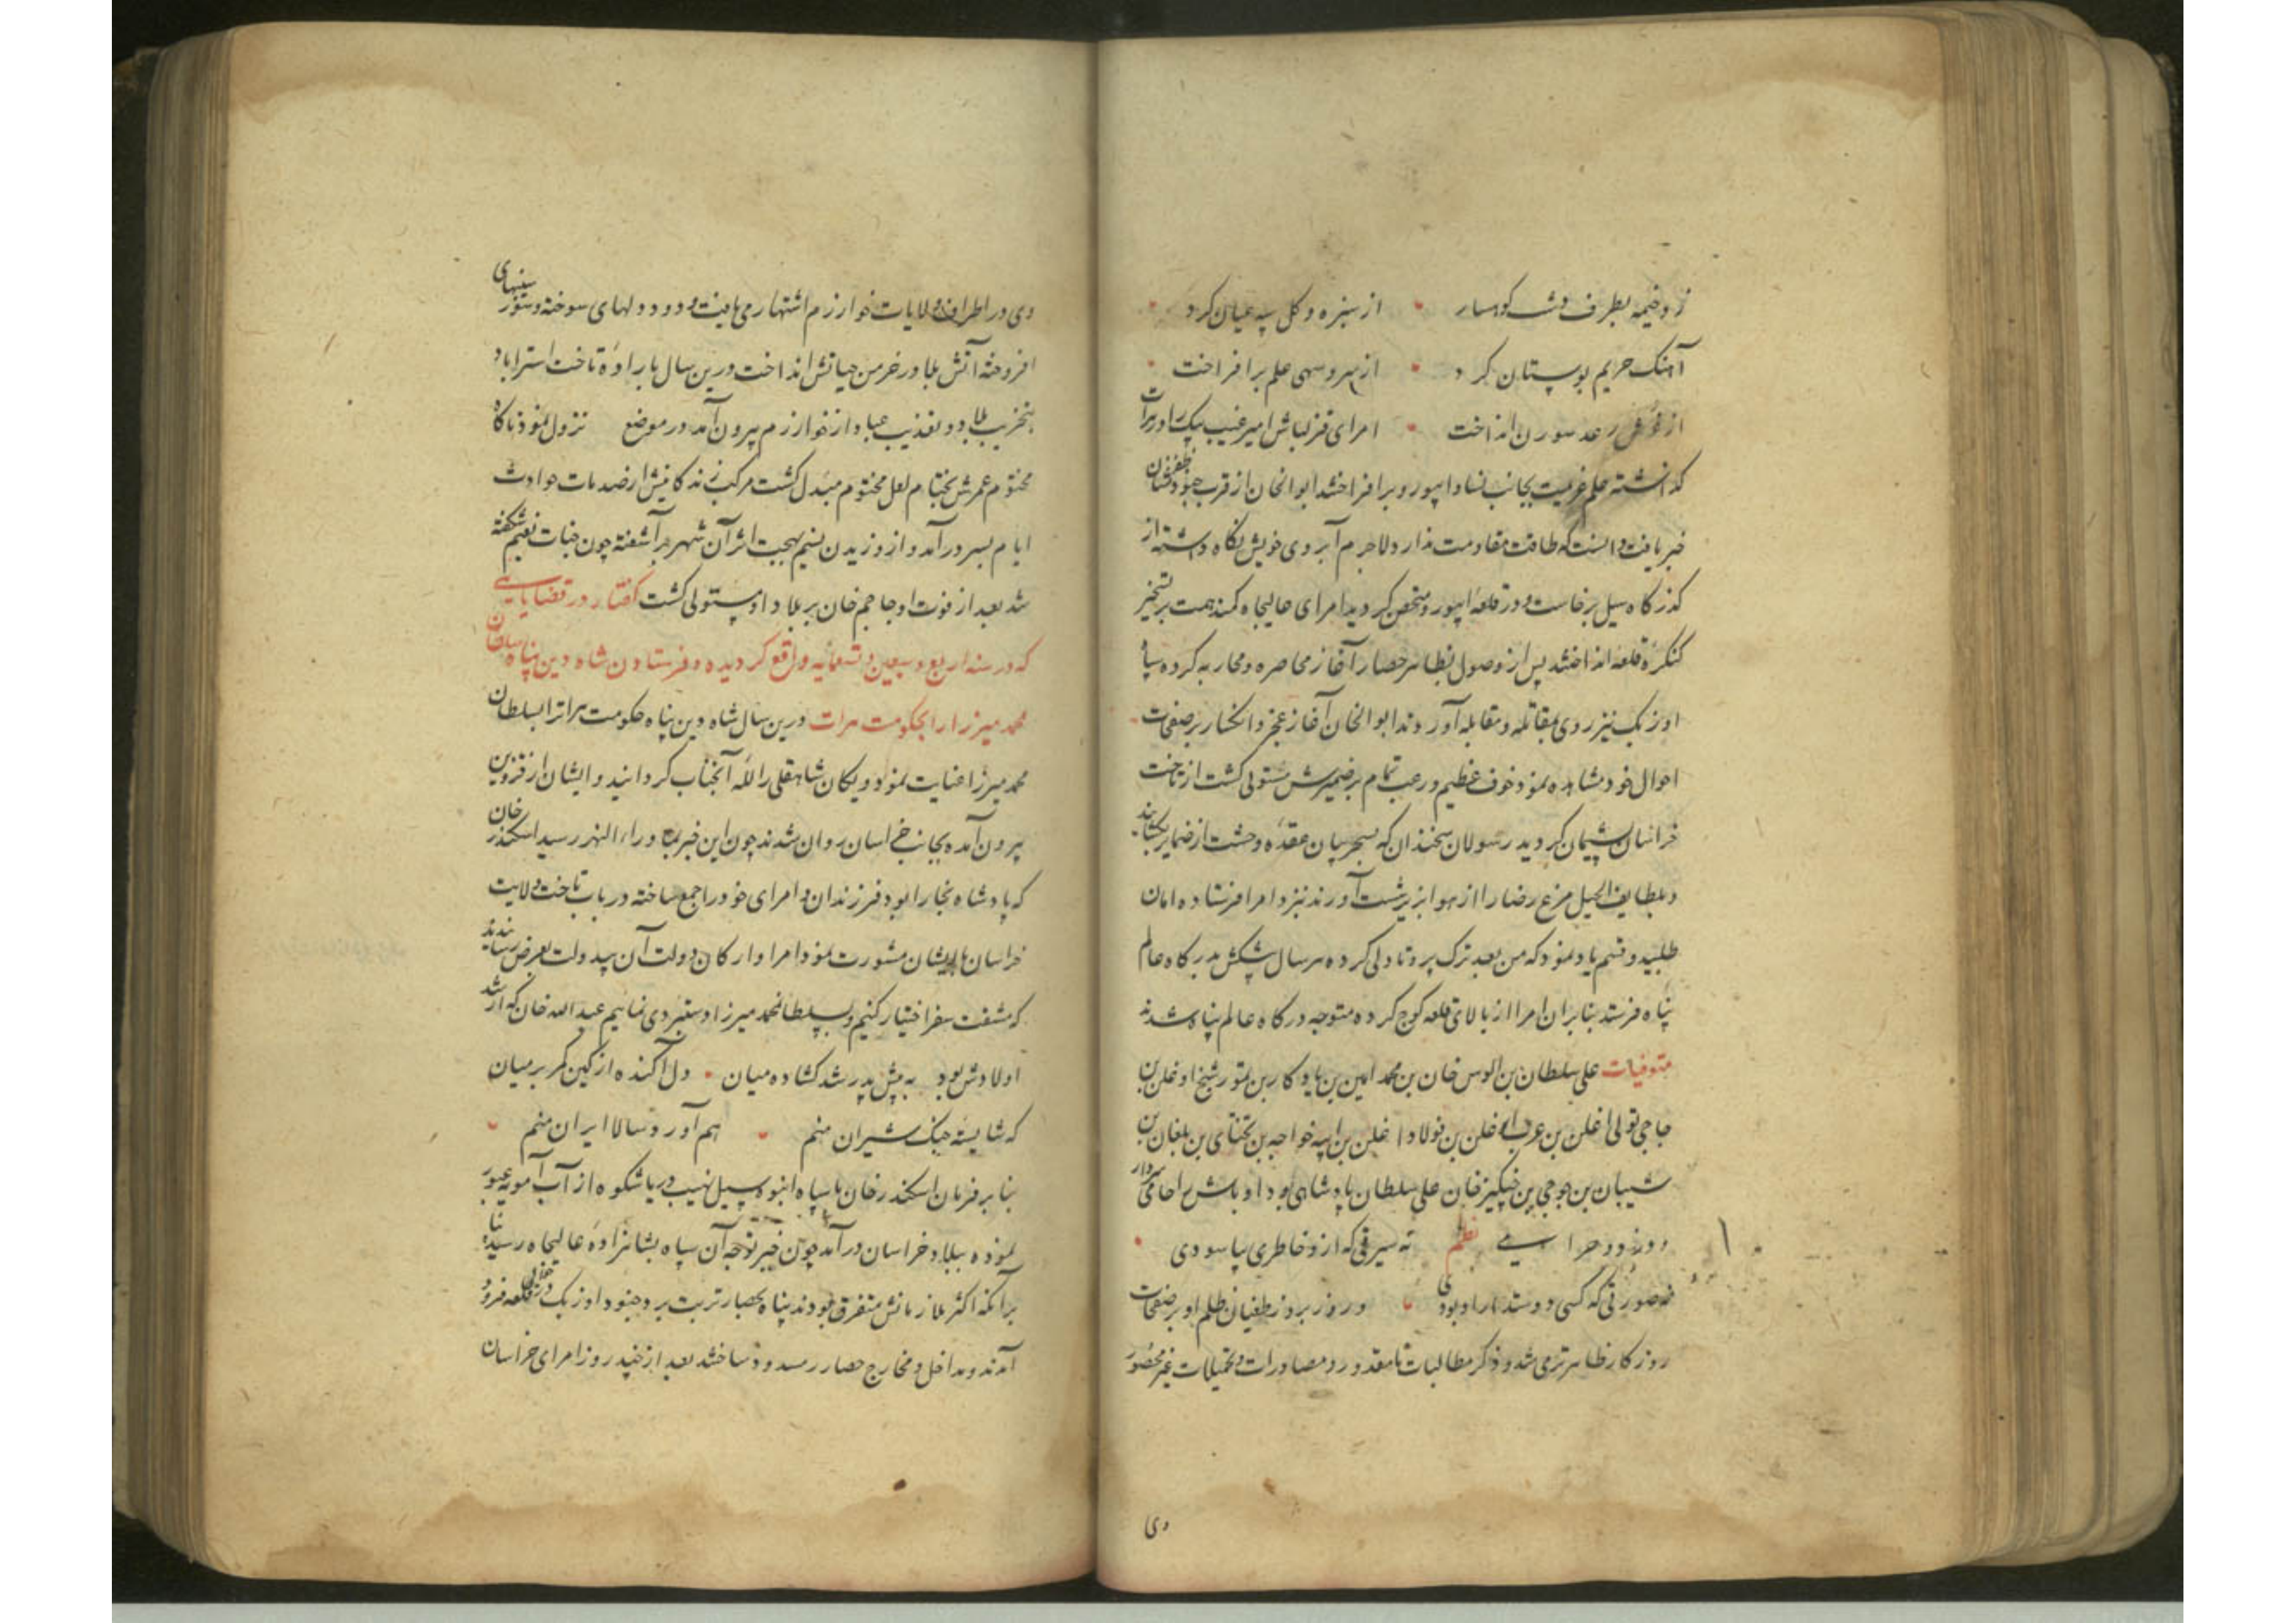 زد خیمه بطرف دشت کوهسار از سبزه و کل سپه عیان کرد
آهنک حریم بوستان کرد از سرو سهی علم برافراخت
از رعد سورن انداخت امرای قزلباش امیر غیب بیک را در هرات
کذاشته علم عزیمت بجانب نسا و ابیورد برافراختند ابوالخان از قرب جنود ظفرنشان
خبر یافت دانست که طاقت مقاومت ندارد لاجرم آبروی خویش نکاه داشته از
کذرکاه سیل برخاست و در قلعه ابیورد متحصن کردید امرای عالیجاه کمند همت بر تسخیر
کنکره قلعه انداختند پس از وصول بظاهر حصار آغاز محاصره و محاربه کرده سپاه
اوزبک نیز روی بمقاتله و مقابله آوردند ابوالخان آغاز عجز و انکسار بر صفحات
احوال خود مشاهده نمود خوف عظیم و رعب تمام بر ضمیرش مستولی کشت از تاخت
خراسان پشیمان کردید رسولان سخندان که بسحر بیان عقده وحشت از ضمایر بکشایند
و بلطایف الحیل مرغ رضا را از هوا بزیر شست آورند نزد امرا فرستاده امان
طلبید و قسم یاد نمود که من بعد ترک پروتاولی کرده هر سال پیشکش بدرکاه عالم
پناه فرستد بنابران امرا از بالای قلعه کوج کرده متوجه درکاه عالم پناه شدند
متوفیات علی سلطان بن الوس خان بن محمد امین بن یادکار بن تمور شیخ اوغلن بن
حاجی تولی اغلن بن عرب اوغلن بن فولاد اغلن بن ایبه خواجه بن تختای بن بلغان بن
شیبان بن جوجی بن چنکیز خان علی سلطان پادشاهی بود اوباش را حامی و سردار
نظم نه سیرتی که ازو خاطری بیاسودی
نه صورتی که کسی دوستدار او بودی و روز بروز طغیان ظلم او بر صفحات
روزکار ظاهرتر می شد و ذکر مطالبات نامقدور و مصادرات و تحمیلات غیر محصور
وی
وی در اطراف ولایات خوارزم اشتهار می یافت و دود دلهای سوخته و سینهای
افروخته آتش بلا در خرمن حیاتش انداخت درین سال باراده تاخت استراباد
بتخریب بلاد و تعذیب عباد از خوارزم بیرون آمد در موضع نزول نمود ناکاه
مختوم عمرش بختام لعل مختوم مبدل کشت مرکب زندکانیش از صدمات حوادث
ایام بسر درآمد و از وزیدن نسیم بهجت اثر آن شهر برآشفته چون جنات نعیم شکفته
شد بعد از فوت او حاجم خان بر بلاد او مستولی کشت کفتار در قضایایی
که در سنه اربع و سبعین و تسعمایه واقع کردیده و فرستادن شاه دین پناه سلطان
محمد میرزا را بحکومت هرات درین سال شاه دین پناه حکومت هرات را بسلطان
محمد میرزا عنایت نمود و یکان شاهقلی را لله آنجناب کردانید و ایشان از قزوین
بیرون آمده بجانب خراسان روان شدند چون این خبر بما وراء النهر رسید اسکندر خان
که پادشاه بخارا بود فرزندان و امرای خود را جمع ساخته در باب تاخت ولایت
خراسان با ایشان مشورت نمود امرا و ارکان دولت آن بیدولت بعرض رسانیدند
که مشقت سفر اختیار کنیم و بسلطانمحمد میرزا دستبردی نماییم عبدالله خان که ارشد
اولادش بود به پیش پدر شد کشاده میان دل آکنده از کین کمر بر میان
که شایسته جنک شیران منم هم آورد سالار ایران منم
بنا بر فرمان اسکندر خان با سپاه انبوه سیل نهیب دریا شکوه از آب آمویه عبور
نموده ببلاد خراسان درآمد چون خبر توجه آن سپاه بشاهزاده عالیجاه رسید بنا
برآنکه اکثر ملازمانش متفرق بودند پناه بحصار تربت برد و جنود اوزبک در حوالی قلعه فرود
آمدند و مداخل و مخارج حصار را مسدود ساختند بعد از چند روز امرای خراسان